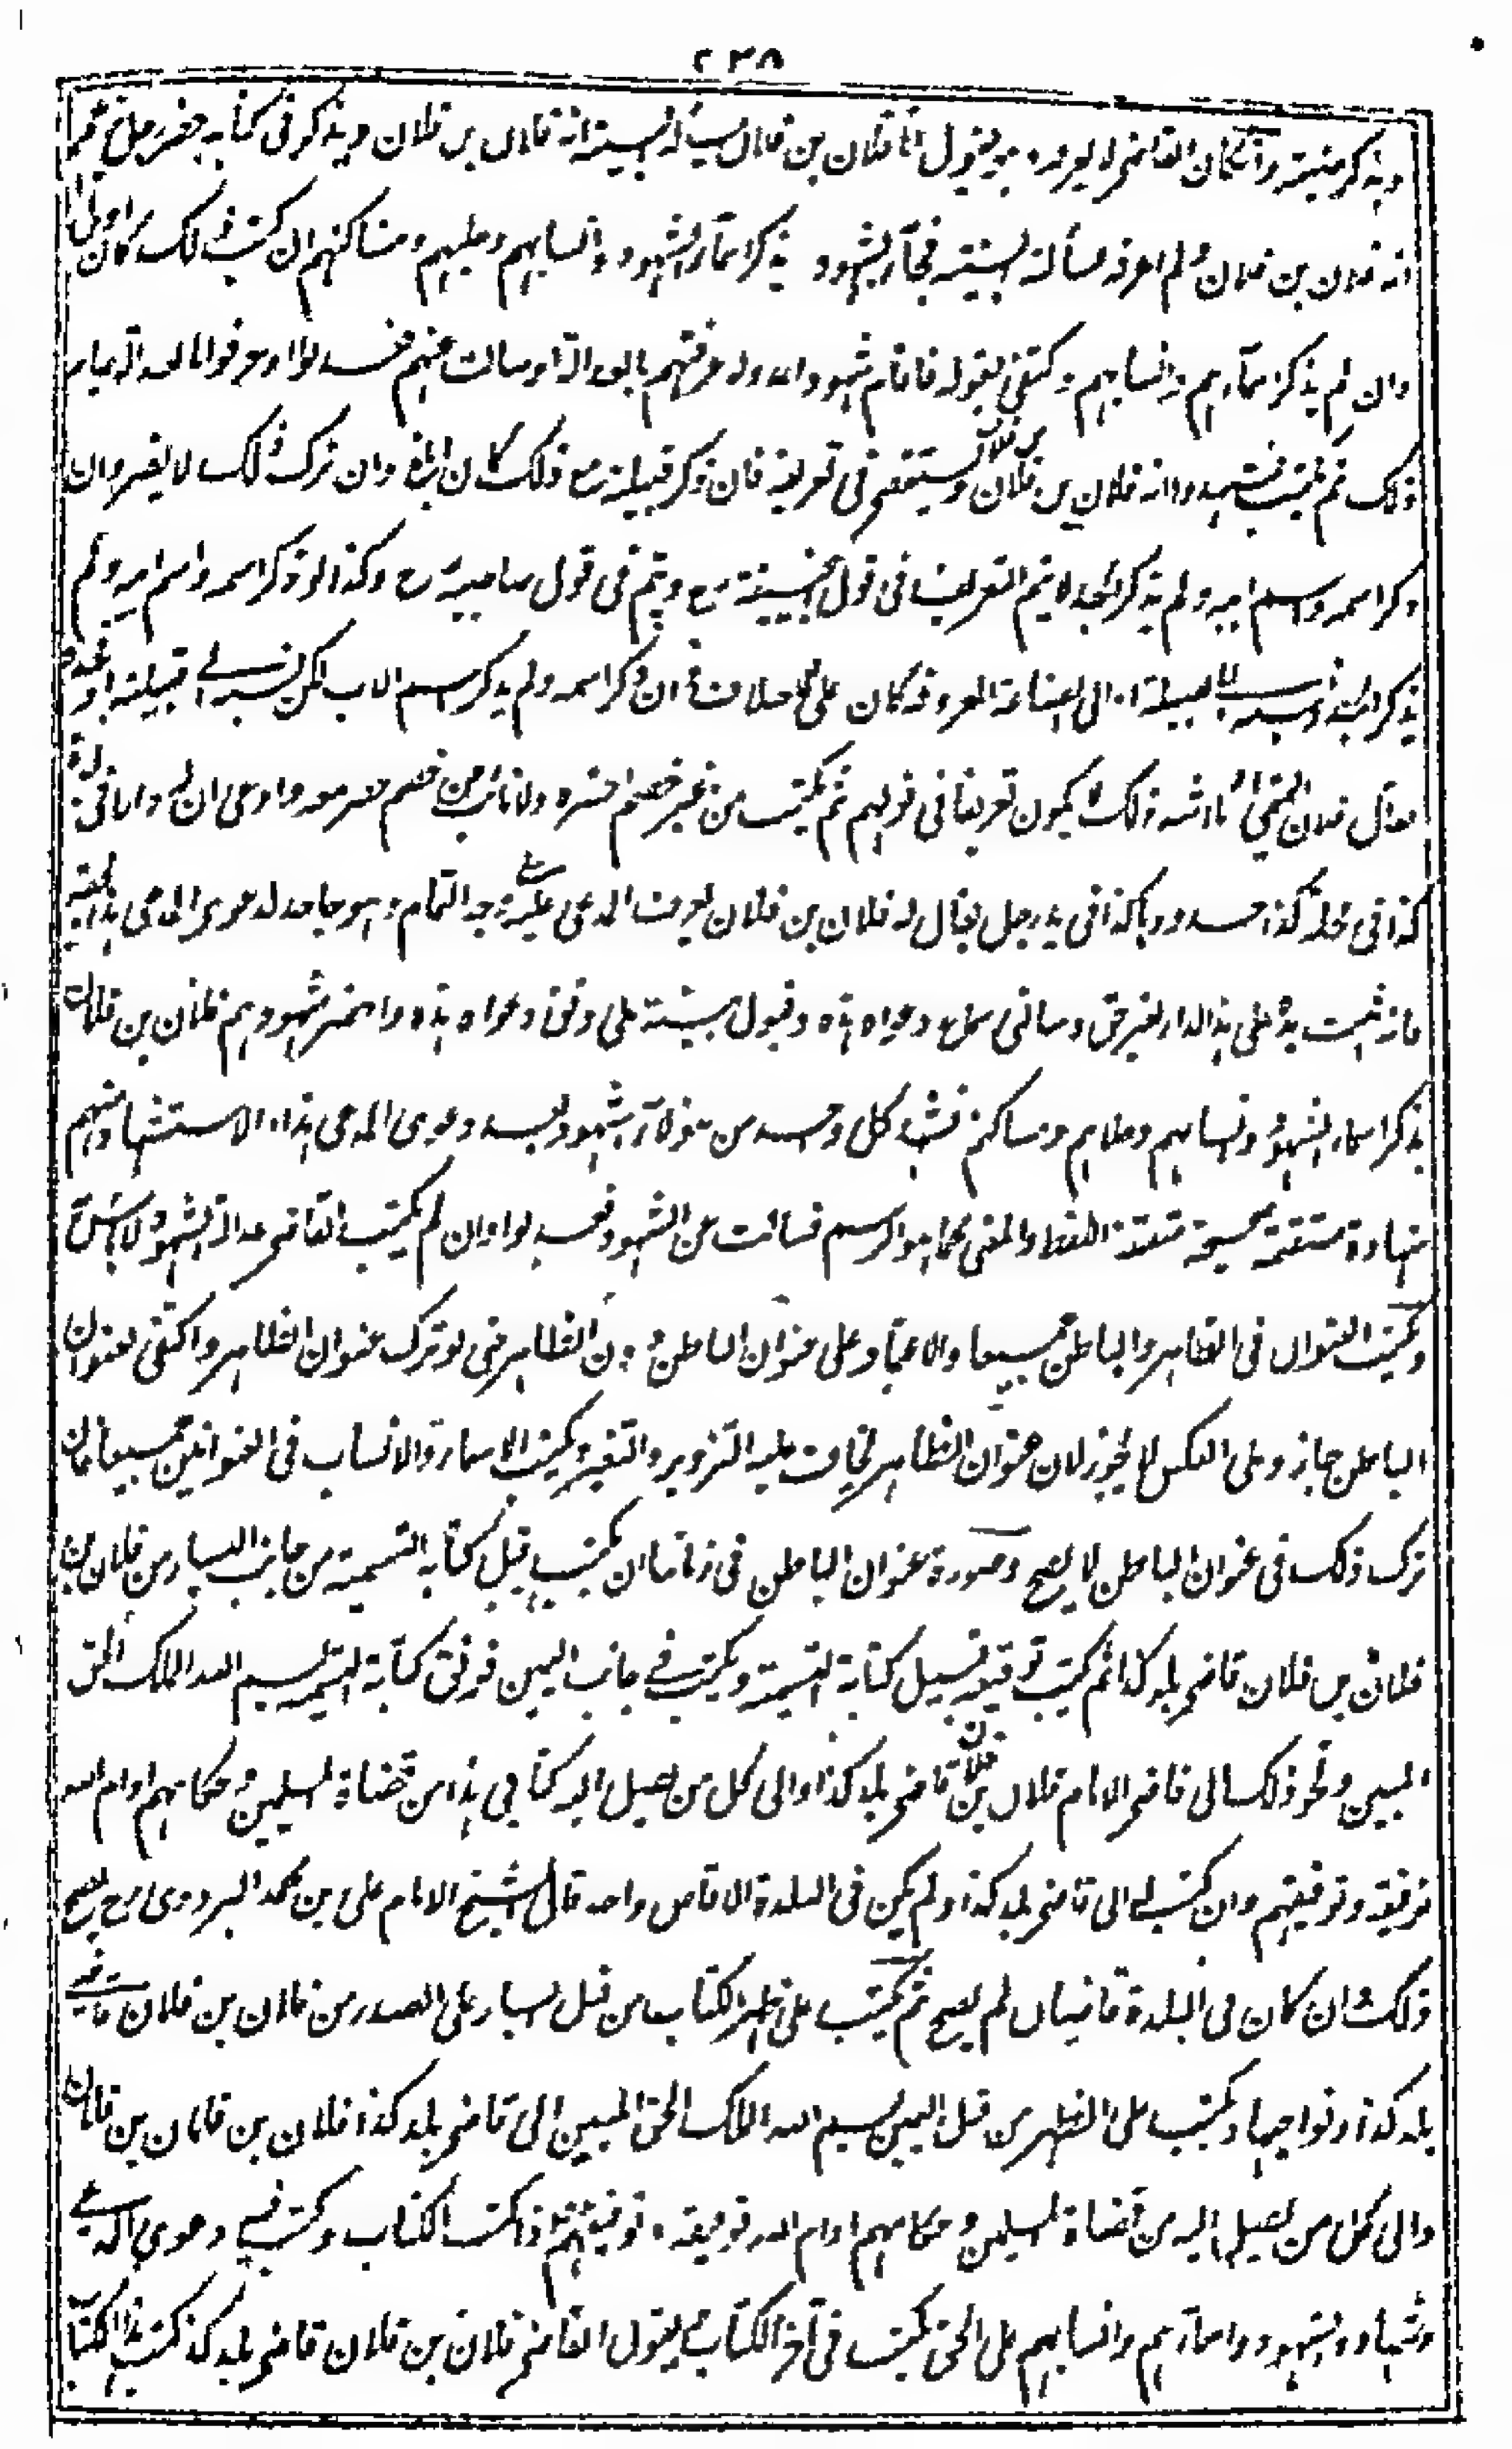 ٢٣٨
ويذكر منيته وان كان القاضى لا يعرفه يقول انا فلان بن فلان البينة انه فلان بن فلان ويذكر فى كتابه حضر رجل زعم
انه فلان بن فلان ولم اعرفه فسألته البينة فجاء بالشهود يذكر اسماء الشهود وانسابهم وحليهم ومساكنهم ان كتب ذلك كان اولى
وان لم يذكر اسماءهم وانسابهم وكتفى بقوله فاقام شهودا عدولا عرفتهم بالعدالة او سألت عنهم فعدلوا وعرفوا بالعدالة جاز
ذلك ثم يكتب فشهدوا انه فلان بن فلان بن فلان ويستقصى فى تعريفه فان ذكر قبيلته مع ذلك كان ابلغ وان ترك ذلك لا يضره وان
ذكر اسمه واسم ابيه ولم يذكر الجد لا يتم التعريف فى قول ابى حنيفة رح ويتم فى قول صاحبيه رح وكذا لو ذكر اسمه واسم ابيه ولم
يذكر الجد ونسبه الى القبيلة او الى الصناعة المعروفة كان على الخلاف وان ذكر اسمه ولم يذكر اسم الاب لكن نسبه الى قبيلته او
فقال فلان التميمى او ما اشبه ذلك لا يكون تعريفا فى قولهم ثم يكتب من غير خصم احضره ولا نائب من خصم حضر معه وادعى ان له دارا فى بلدة
كذا فى محلة كذا حدودها كذا فى يد رجل يقال له فلان بن فلان يعرف المدعى عليه وجه التمام وهو جاحد لدعوى المدعى هذا
يده على هذا الدار بغير حق وسألنى سماع دعواه هذه وقبول بينته على وفق دعواه هذه واحضر شهودا وهم فلان بن فلان
يذكر اسماء الشهود وانسابهم وحلاهم ومساكنهم فشهد كل واحد من هؤلاء الشهود بعد دعوى المدعى هذا والاستشهاد منهم
شهادة مستقيمة صحيحة متفقة اللفظ والمعنى كما هو الرسم فسألت عن الشهود فعدلوا وان لم يكتب القاضى عدالة الشهود لا بأس به
ويكتب العنوان فى الظاهر والباطن جميعا والاعتماد على عنوان الباطن دون الظاهر حتى لو ترك عنوان الظاهر واكتفى بعنوان
الباطن جاز وعلى العكس لا يجوز لان عنوان الظاهر يخاف عليه التزوير والتغير ويكتب الاسماء والانساب فى العنوانين جميعا فان
ترك ذلك فى عنوان الباطن لا يصح وصورة عنوان الباطن فى زماننا ان يكتب قبل كتابه التسمية من جانب اليسار من فلان بن
فلان بن فلان قاضى بلد كذا ثم يكتب توقيعه قبيل كتابة التسمية ويكتب فى جانب اليمين فوق كتابة التسمية بسم الله الملك الحق
المبين ونحو ذلك الى قاضى الامام فلان بن فلان قاضى بلد كذا والى كل من يصل اليه كتابى هذا من قضاة المسلمين وحكامهم ادام الله
توفيقه وتوفيقهم وان كتب الى قاضى بلد كذا ولم يكن فى البلدة الا قاض واحد قال الشيخ الامام على بن محمد البزدوى رح يصح
ذلك وان كان فى البلدة قاضيان لم يصح ثم يكتب على ظهر الكتاب من قبل اليسار على الصدر من فلان بن فلان قاضى
بلد كذا ونواحيها ويكتب على الظهر من قبل اليمين بسم الله الملك الحق المبين الى قاضى بلد كذا فلان بن فلان بن فلان
والى كل من يصل اليه من قضاة المسلمين وحكامهم ادام الله توفيقه وتوفيقهم فاذا كتب الكتاب وكتب فيه دعوى المدعى
وشهادة الشهود واسماءهم وانسابهم على الحق يكتب فى آخر الكتاب يقول القاضى فلان بن فلان قاضى بلد كذا كتب هذا الكتاب